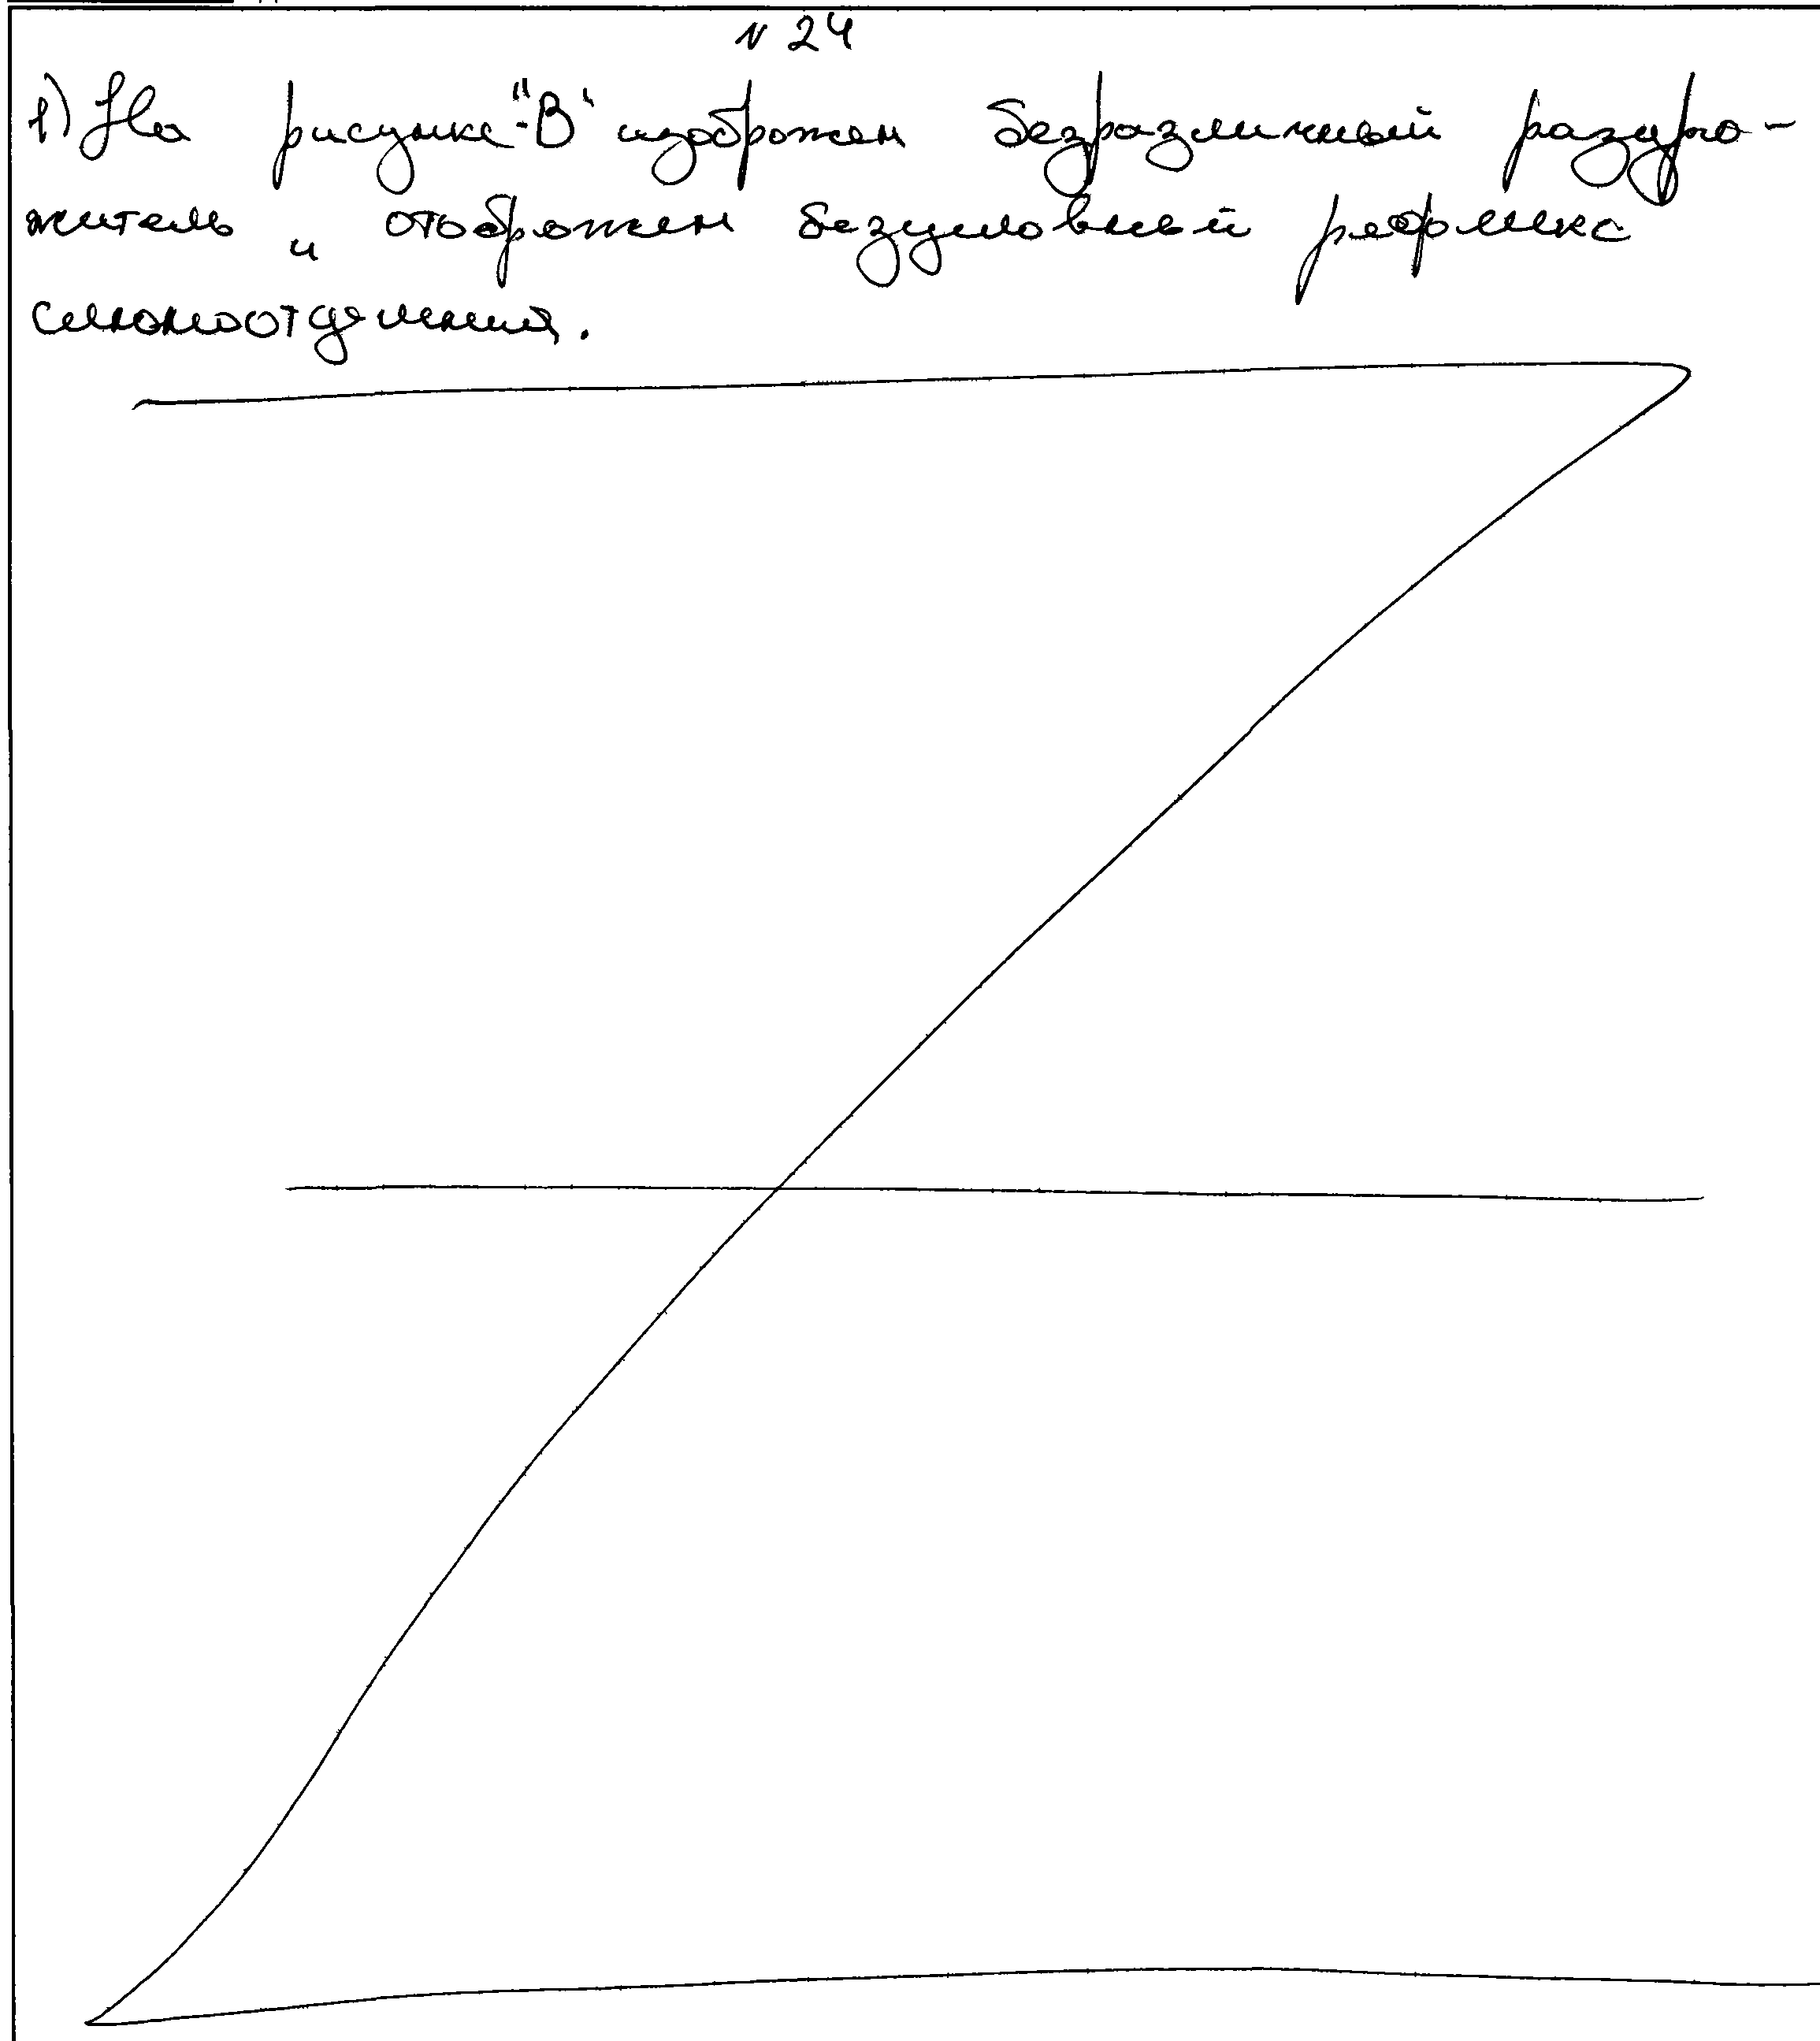 N 24
1) На рисунке "В" изображен безразличный раздра-
житель и отображен безусловный рефлекс
слюноотделения.